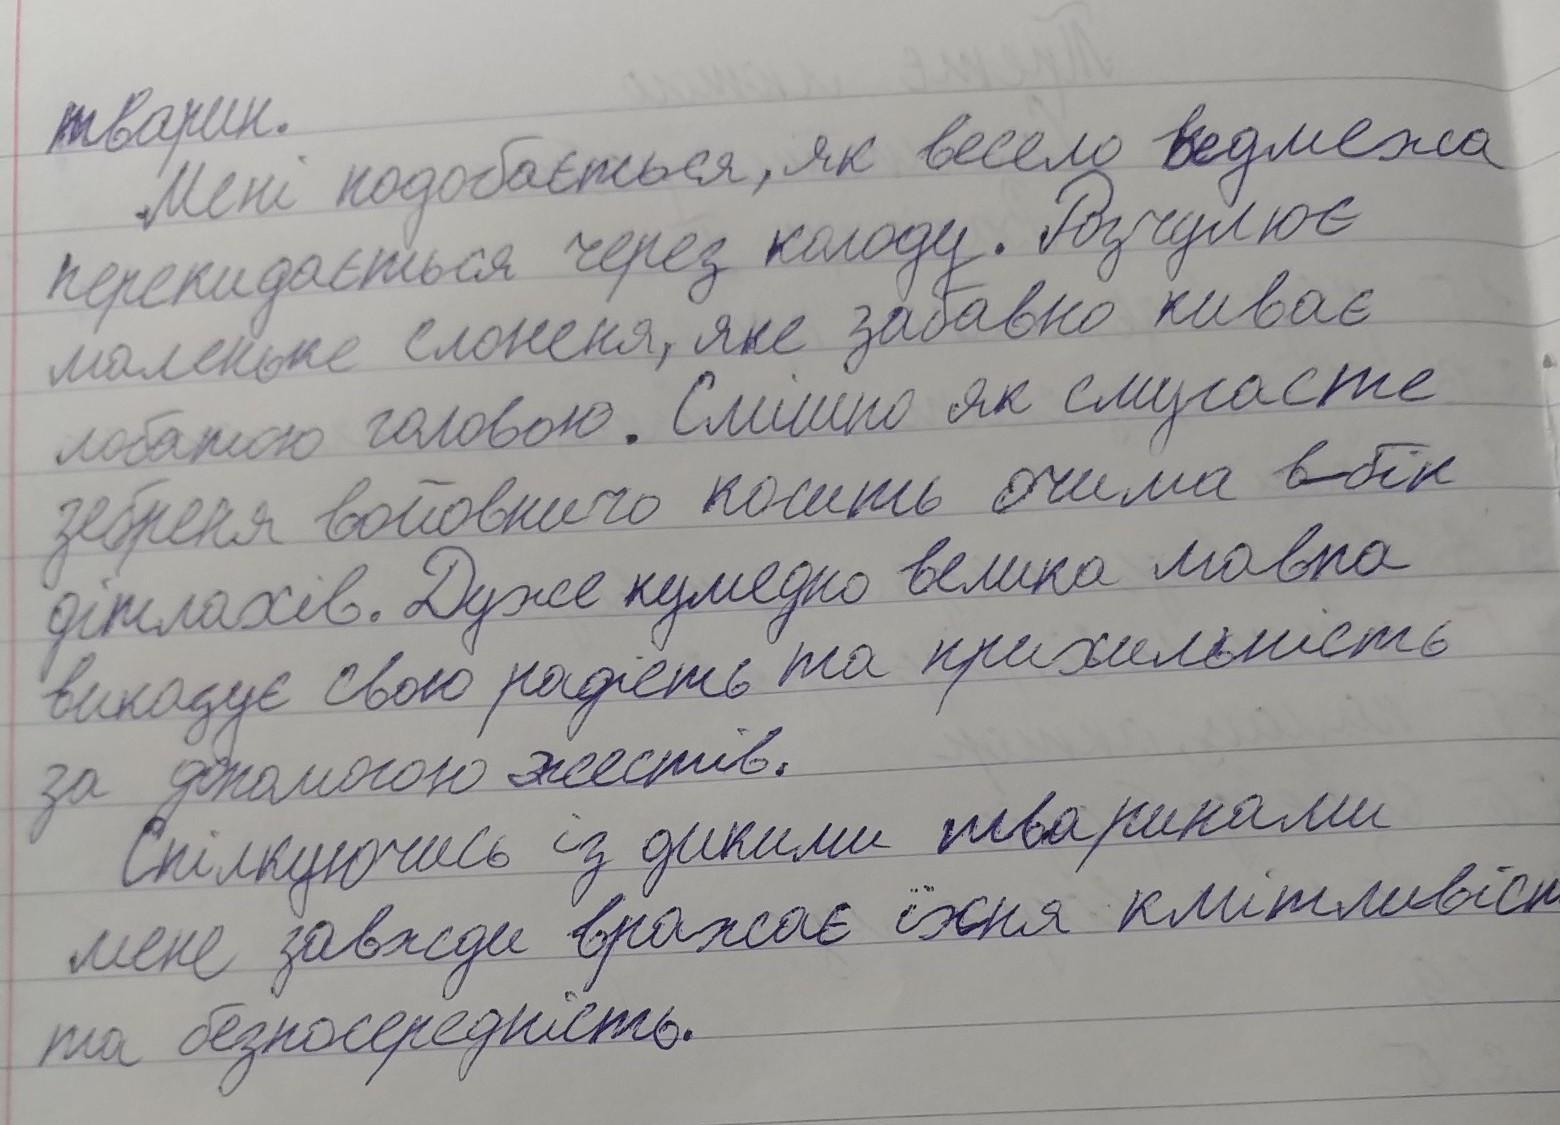 тварин.
Мені подобається, як весело ведмежа
перекидається через колоду. Розчулює
маленьке слоненя, яке забавно киває
лобатою головою. Смішно як смугасте
зебреня войовничо косить очима в бік
дітлахів. Дуже кумедно велика мавпа
виказує свою радість та прихильність
за допомогою жестів.
Спілкуючись із дикими тваринами
мене завжди вражає їхня кмітливіст
та безпосередність.